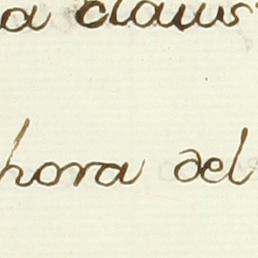 a claus
hora del